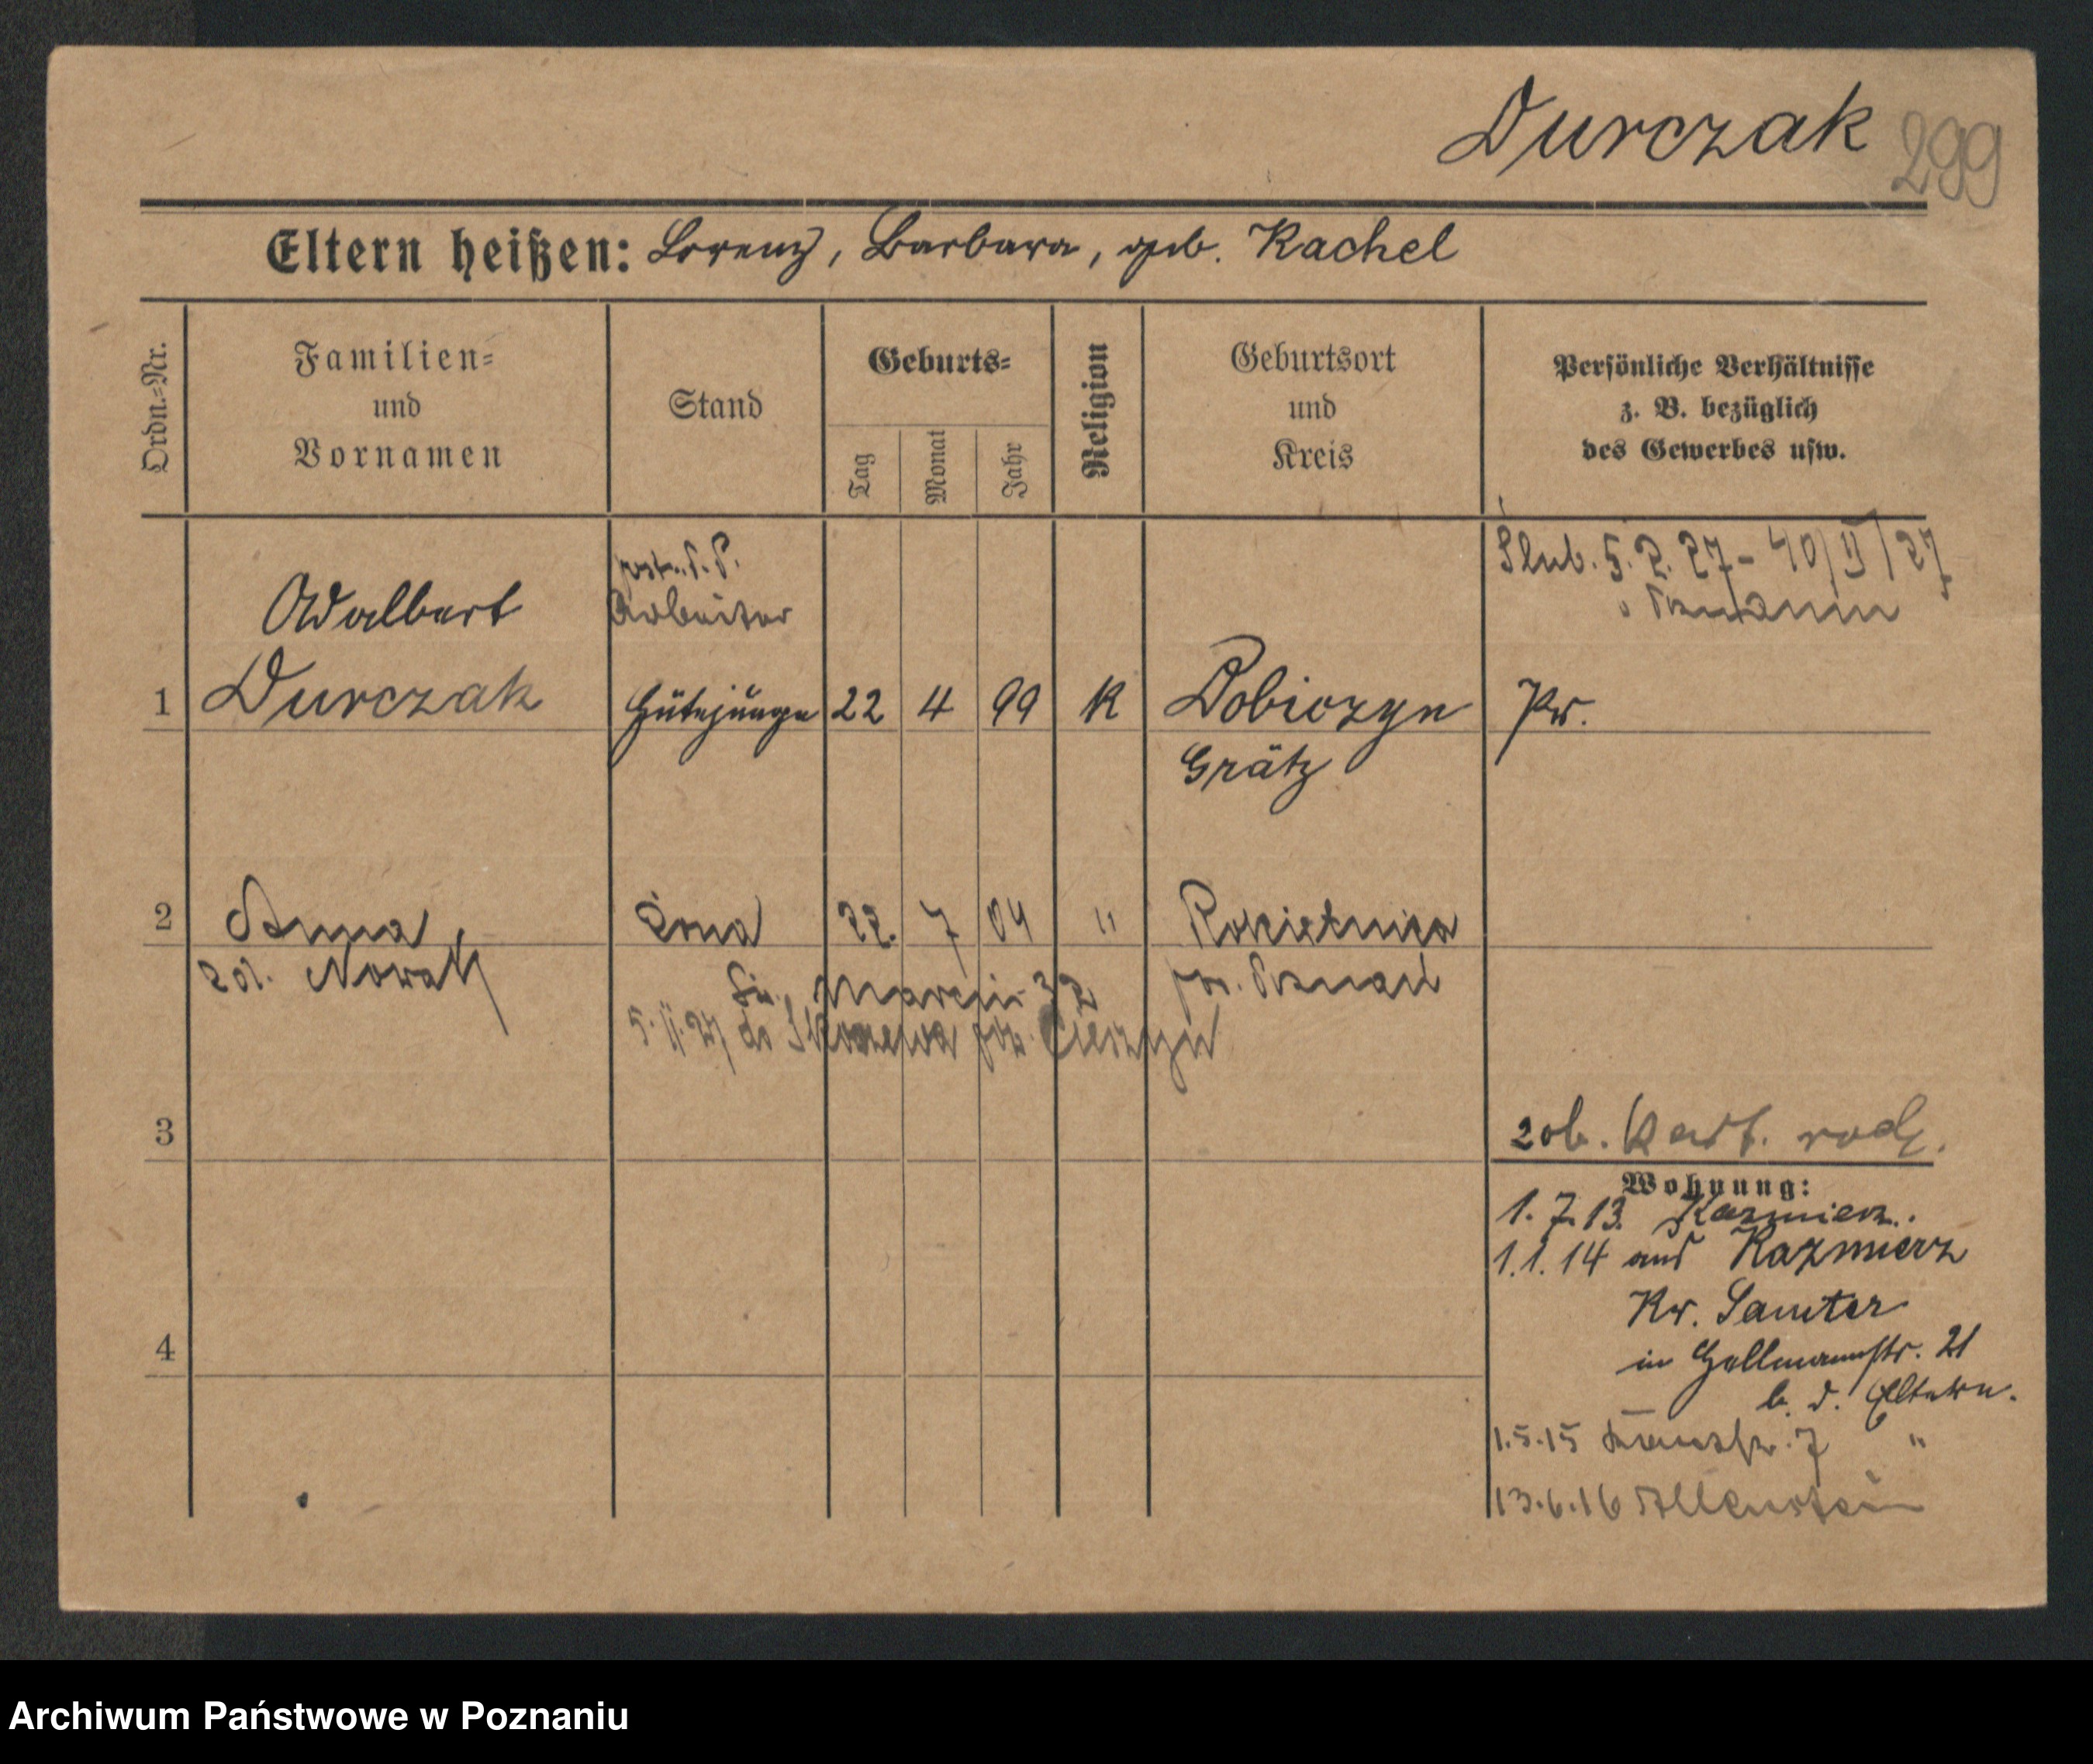 Durczak 299
Eltern heißen: Lorenz, Barbara, geb. Rachel
Ordn.=Nr.
Familien=
und
Vornamen
Stand
Geburts=
Tag
Monat
Jahr
Religion
Geburtsort
und
Kreis
Persönliche Verhältnisse
z. B. bezüglich
des Gewerbes usw.
Ślub. 5. 2. 27 - 40/II/27
Poznaniu
Adalbert
Arbeiter
1 Durczak Hütejunge 22 4 99 K Dobiczyn Pr.
Grätz
2 Anna żona 22. 7 04 " Rokietnica
zd. Nowak
Św. Marcin 32 pow. Poznań
5. II. 27 do
3
zob. rodz.
Wohnung:
1. 7. 13. Kazmierz.
1. 1. 14 aus Kazmierz
Kr. Samter
in Hellmannstr. 21
b. d. Eltern.
1.5.15 7 "
13.6.16 Allenstein
4
Archiwum Państwowe w Poznaniu